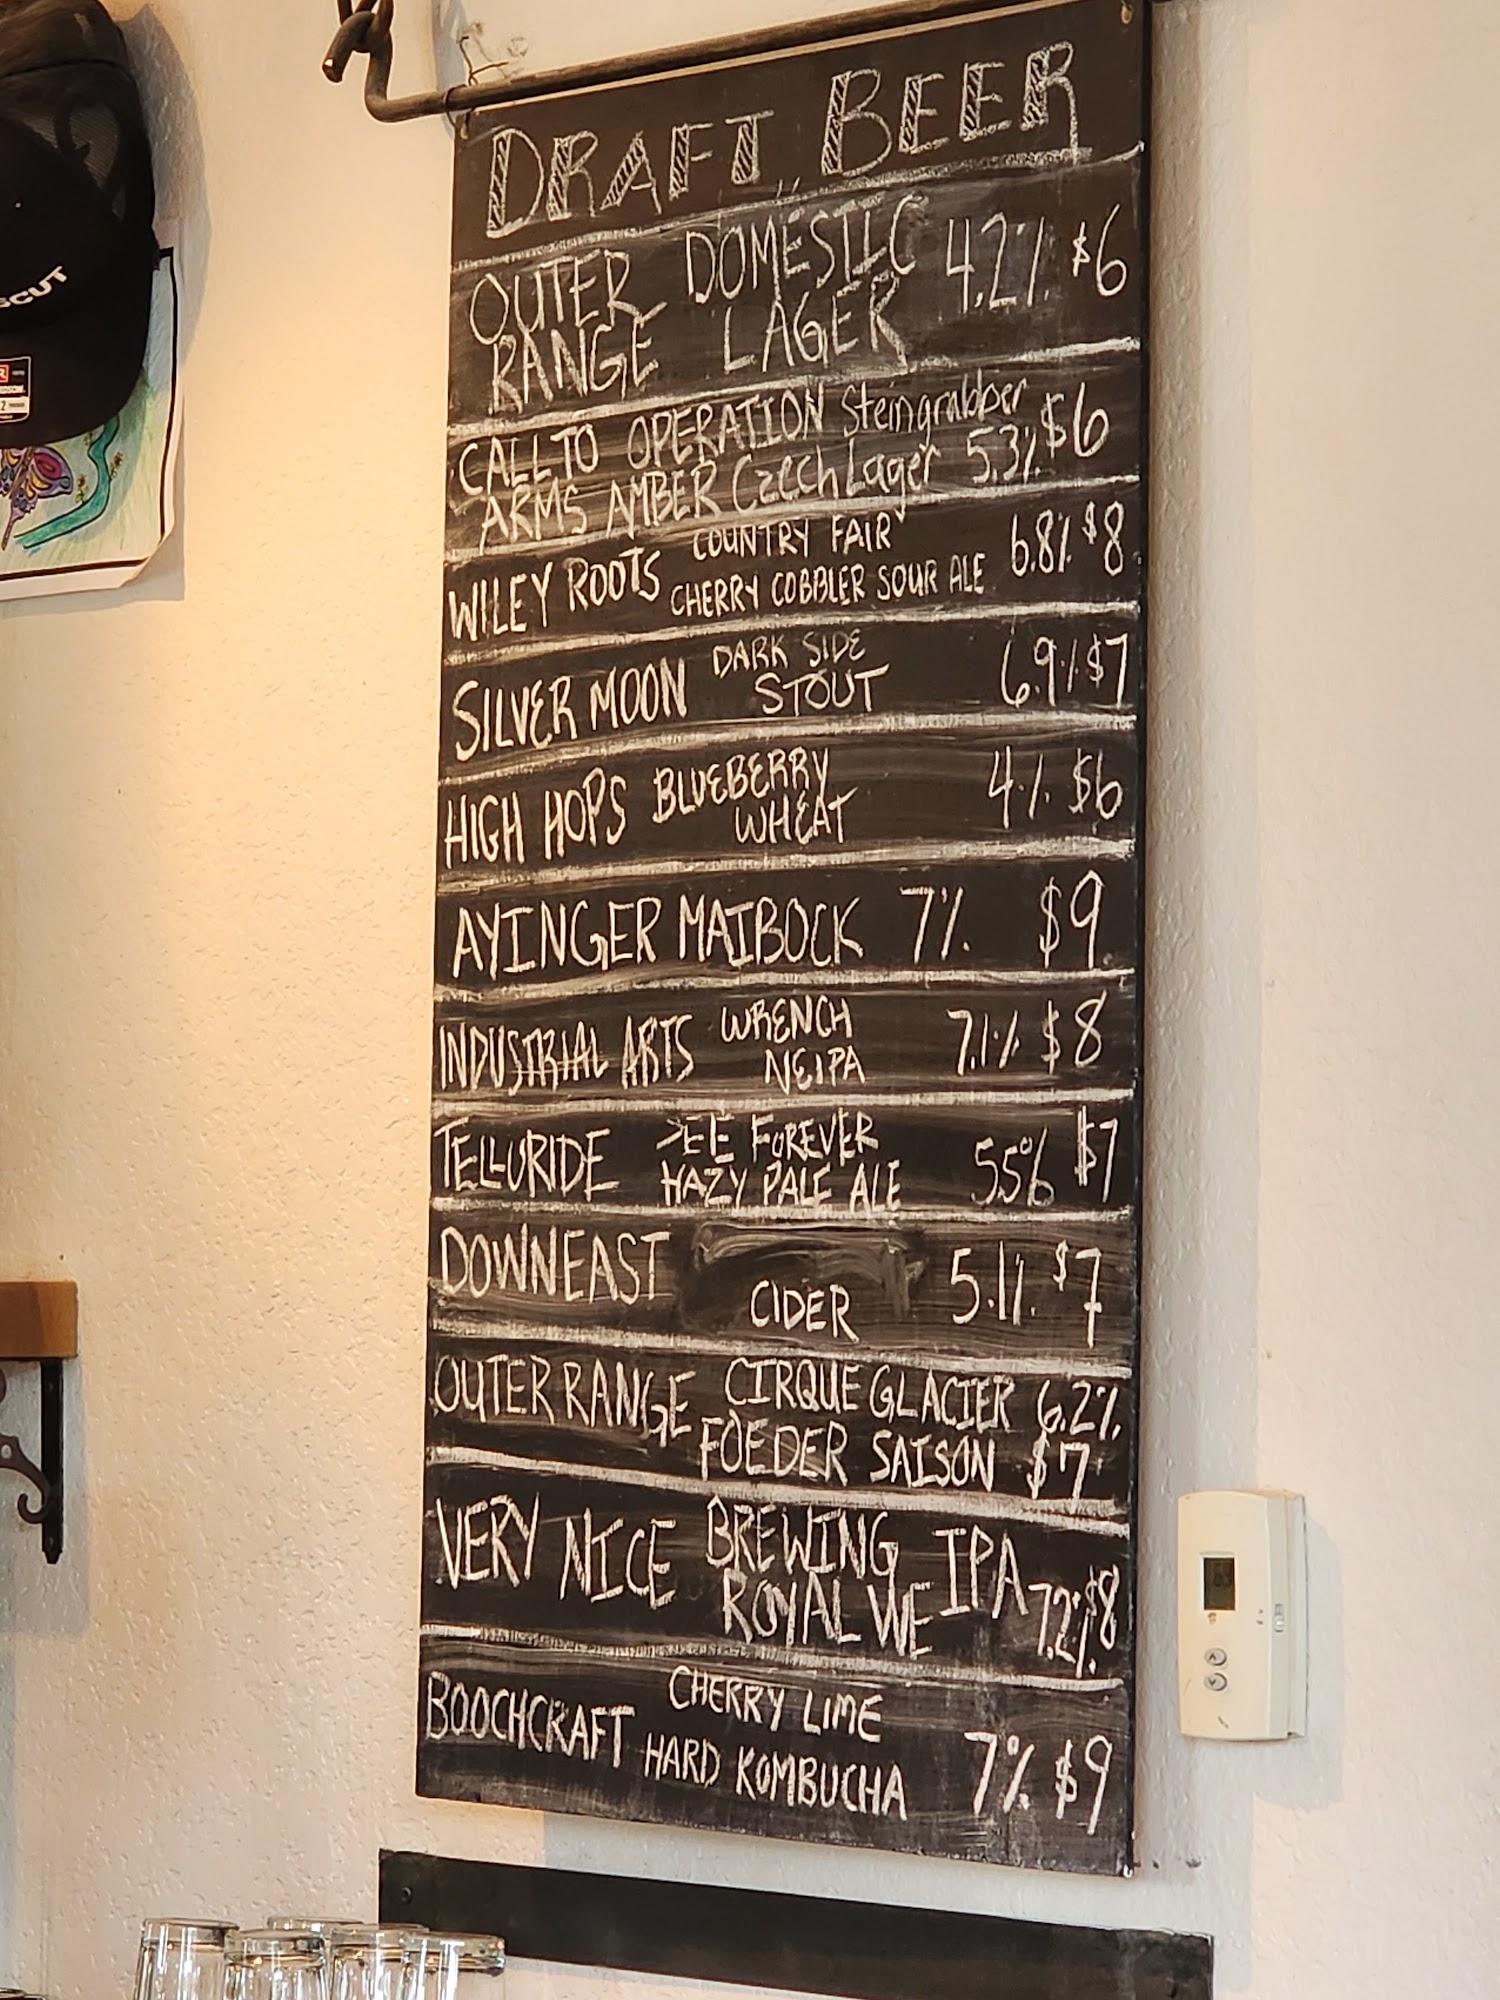 DRAFT BEER
OUTER DOMESTIC 4.2% $6
RANGE LAGER
CALL TO OPERATION Steingrabber $6
ARMS AMBER Czech Lager 5.3%
WILEY ROOTS COUNTRY FAIR 6.8% $8
CHERRY COBBLER SOUR ALE
SILVER MOON DARK SIDE 6.9% $7
STOUT
HIGH HOPS BLUEBERRY 4% $6
WHEAT
AYINGER MAIBOCK 7% $9
INDUSTRIAL ARTS WRENCH 7.1% $8
NEIPA
TELLURIDE SEE FOREVER 5.5% $7
HAZY PALE ALE
DOWNEAST 5.1% $7
CIDER
OUTER RANGE CIRQUE GLACIER 6.2%
FOEDER SAISON $7
VERY NICE BREWING IPA
ROYAL WE 7.2% $8
BOOCHCRAFT CHERRY LIME
HARD KOMBUCHA 7% $9